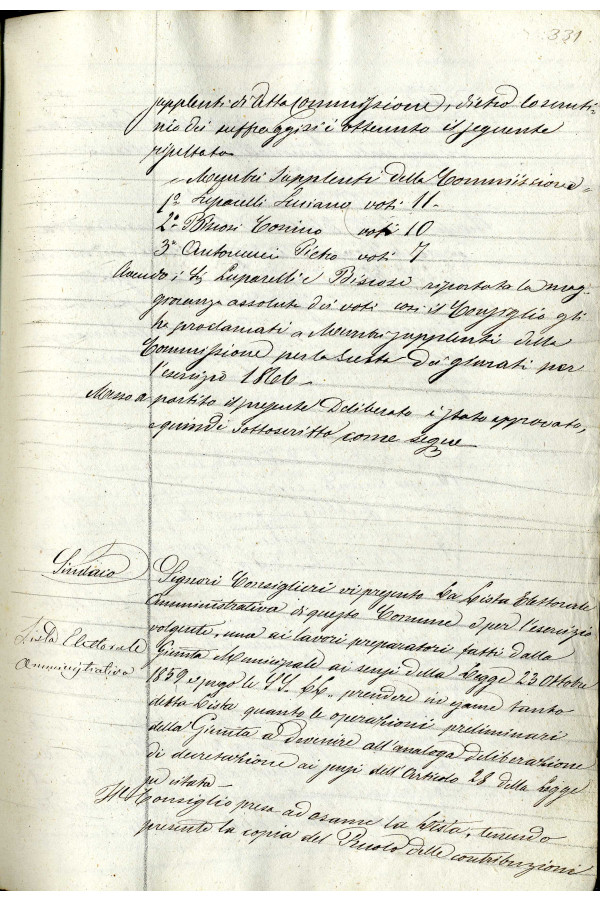 331
supplenti di detta Commissione, dietro lo scruti=
nio dei suffraggi si è ottenuto il seguente
risultato
Membri Supplenti della Commissione=
1° Luparelli Luciano voti 11-
2° voti 10
3° Antonucci Pietro voti 7
Avendo i Luparelli e riportata la mag=
gioranza assoluta dei voti così il Consiglio gli
ha proclamati a Membri supplenti della
Commissione per la Lista dei giurati per
l'esercizio 1866-
Messo a partito il presente Deliberato è stato approvato,
e quindi sottoscritto come segue
Sindaco
Signori Consiglieri vi presento la Lista Elettorale
Amministrativa di questo Comune e per l'esercizio
volgente, una ai lavori preparatori fatti dalla
Lista Elettorale
Amministrativa
Giunta Municipale ai sensi della Legge 23 Ottobre
1859 e prego le SS. LL. prendere in esame tanto
detta Lista quanto le operazioni preliminari
della Giunta a Divenire all'analoga deliberazione
di decretazione ai sensi dell'Articolo 28 della Legge
citata-
Il Consiglio presa ad esame la Lista, tenendo
presente la copia del Ruolo delle contribuzioni